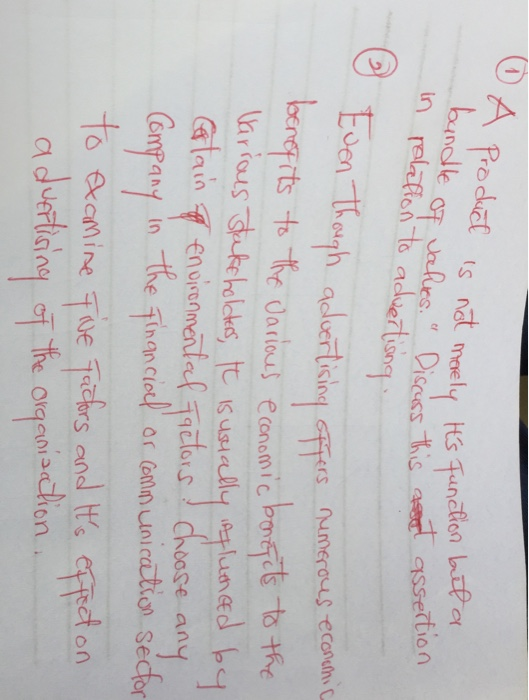 ① A Product is not merely It's function but a
bundle of values." Discuss this assertion
in relation to advertising.
② Even though advertising offers numerous economic
benefits to the various economic benefits to the
Various Stakeholders, It is usually influnced by
Certain environmental factors. Choose any
Company in the financial or communication sector
to examine five factors and It's effect on
advertising of the organization.